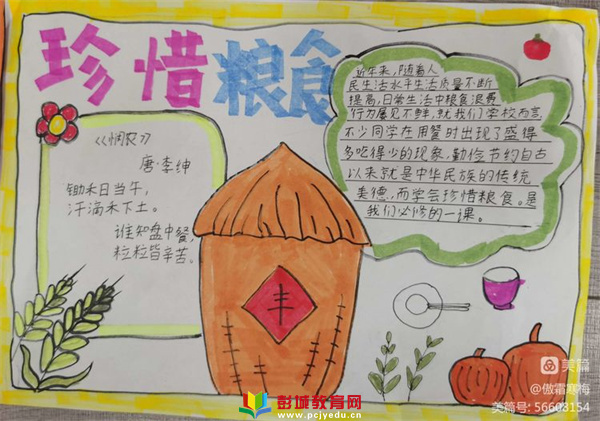 珍惜粮食
《悯农》
唐·李绅
锄禾日当午,
汗滴禾下土。
谁知盘中餐,
粒粒皆辛苦。
近年来,随着人
民生活水平生活质量不断
提高,日常生活中粮食浪费
行为屡见不鲜,就我们学校而言,
不少同学在用餐时出现了盛得
多吃得少的现象,勤俭节约自古
以来就是中华民族的传统
美德,而学会珍惜粮食。是
我们必修的一课。
丰
美篇
@傲霜寒梅
美篇号: 56603154
彭城教育网
www.pcjyedu.cn